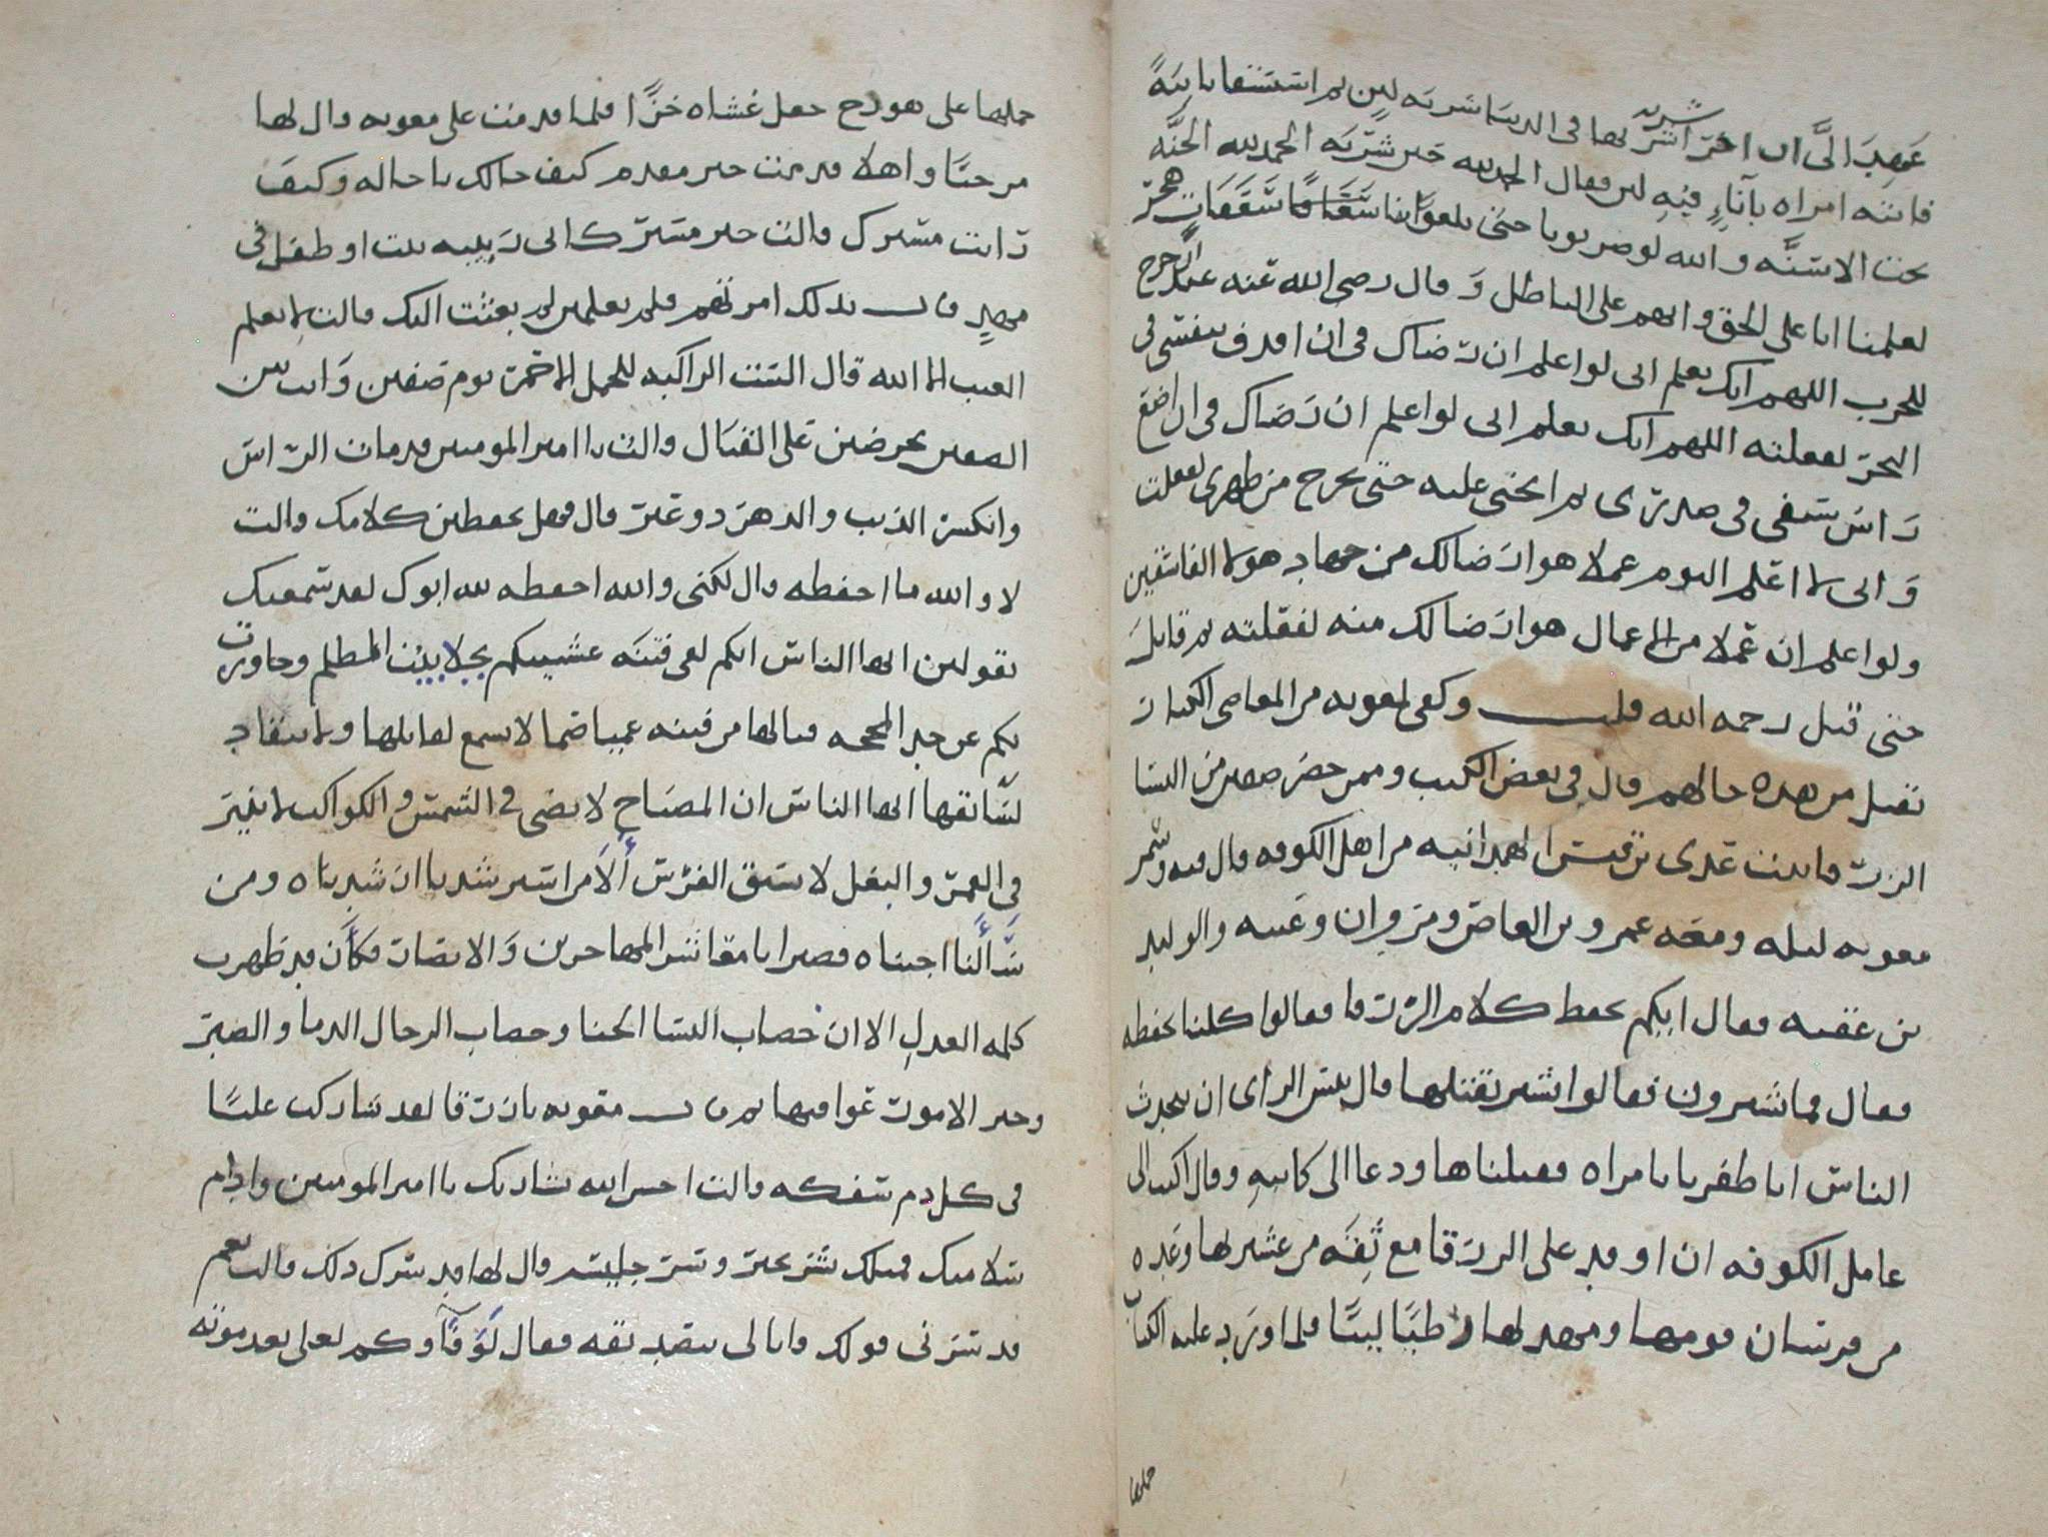 عهد الىّ ان اخر شربة اشربها فى الدنيا شربة لبن ثم استسقا باينة
فاتته امراه بآناءٍ فيهِ لبن فقال الحمد لله خير شربه الحمد لله الجنّه
تحت الاسنّه والله لو ضربونا حتى بلغوا بنا سعفات هجر
لعلمنا انا على الحق وانهم على الباطل وقال رضى الله عنه عند الخروج
للحرب اللهم انك تعلم انى لو اعلم ان رضاك فى ان اقذف بنفسى فى
البحر لفعلته اللهم انك تعلم انى لو اعلم ان رضاك فى ان اضع
راس سيفى فى صدرى ثم انحنى عليه حتى يخرج من ظهرى لفعلت
وانى لا اعلم اليوم عملا هو ارضا لك من جهاد هولا الفاسقين
ولو اعلم ان عملا من الاعمال هو ارضا لك منه لفعلته ثم قاتل
حتى قتل رحمه الله قلت وكفى لمعويه من المعاصى الكبار
تقتل من هذه حالهم قال فى بعض الكتب وممن حضر صفين من النسا
الزرقا بنت عدى بن قيس الهمدانيه من اهل الكوفه قال فيه وسمر
معويه ليله ومعه عمرو بن العاص ومروان وعتبه والوليد
بن عقبه فقال ايكم يحفظ كلام الزرقا فقالوا كلنا نحفظه
فقال فما تشيرون فقالوا نشير بقتلها قال بئس الراى ان يتحدث
الناس انا ظفرنا بامراه فقتلناها ودعا الى كاتبهِ وقال اكتب الى
عامل الكوفه ان اوفد على الزرقا مع ثِقَه من عشيرتها وعِده
من فرسان قومها ومهد لها وطبًا لينًا فلما ورد عليه الكتاب
حملها
حملها على هودج جعل غشاه خزًّا فلما قدمت على معويه قال لها
مرحبًا واهلا قدمت خير مقدم كيف حالك يا خاله وكيف
رايت مسيرك قالت خير مسير كانى ربيبه بيت او طفل فى
مهدٍ قال بذلك امرتهم فلم تعلمين لم بعثت اليك قالت لا يعلم
الغيب الا الله قال الست الراكبه للجمل الاحمر يوم صفين وانت بين
الصفين تحرضين على القتال قالت يا امير المومنين قد مات الراس
وانكسر الذنب والدهر دو غير قال فهل تحفظين كلامك قالت
لا والله ما احفظه قال لكنى والله احفظه لله ابوك لقد سمعتك
تقولين ايها الناس انكم لفى فتنَه عشيتكم بجلابيب المظلم وجاوزت
بكم عن جد المحجه فيا لها من فتنه عميا صما لا يسمع لقايلها ولا ينقاد
لسَايقها ايها الناس ان المصباح لا يضى فى الشمس والكواكب لا ينير
فى القمر والبغل لا يسبق الفرس أَلاَ من استرشدنا ارشدناه ومن
سَأَلنا اجبناه فصبرا يا معاشر المهاجرين والانصار فكأَن قد ظهرت
كلمه العدلِ الا ان خضاب النسا الحنا وخضاب الرجال الدما والصبر
وخير الامور عواقبها ثم قال معويه يا زرقا لقد شاركت عليًا
فى كل دم سفكه قالت احسن الله بشارتك يا امير المومنين وادام
سلامتك فمثلك بشر بخير وسر جليسه قال لها قد سرك ذلك قالت نعم
قد سرنى قولك وانا لى بتصديقه فقال لَوَفآوكم لعلى بعد موته